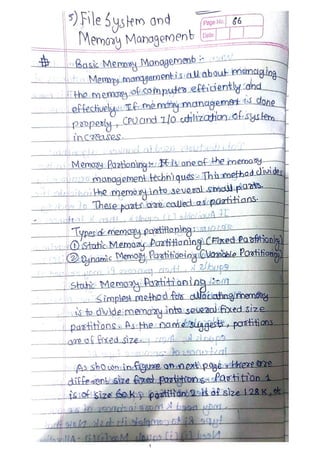 5) File System and
Memory Management
Page No. 86
Date
Basic Memory Management :-
Memory management is all about managing
the memory of computer efficiently and
effectively. If memory management is done
properly, CPU and I/O utilization of system
increases.
Memory Partioning :- It is one of the memory
management techniques. This method divides
the memory into several small parts.
These parts are called as partitions.
Types of memory partitioning :
① Static Memory Partitioning (Fixed Partitioning)
② Dynamic Memory Partitioning (Variable Partitioning)
Static Memory Partitioning :-
Simplest method for allocating memory
is to divide memory into several fixed size
partitions. As the name suggests, partitions
are of fixed size.
As shown in figure on next page, there are
different size fixed partitions. Partition 1
is of size 60 K, partition 2 is of size 128 K, etc